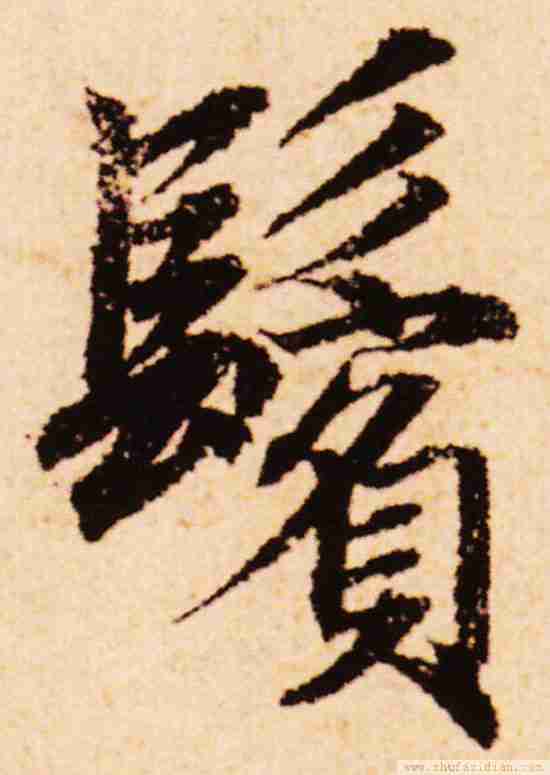 鬢
www.shufazidian.com